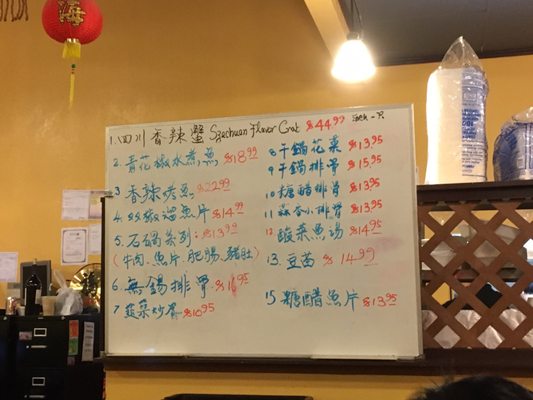 海
1. 四川香辣蟹 Szechuan Flavor Crab $44.99
2. 青花椒水煮魚 $18.99
3 香辣烤魚 $22.99
4. 椒溜魚片 $14.99
5. 石鍋系列: $13.99
(牛肉.魚片.肥腸.豬肚)
6. 無錫排骨 $16.95
7 韮菜炒 $10.95
8 干鍋花菜 $13.95
9 干鍋排骨 $15.95
10 糖醋排骨 $13.95
11 蒜香小排骨 $13.95
12. 酸菜魚湯 $14.95
13. 豆苗 $14.99
15. 糖醋魚片 $13.95